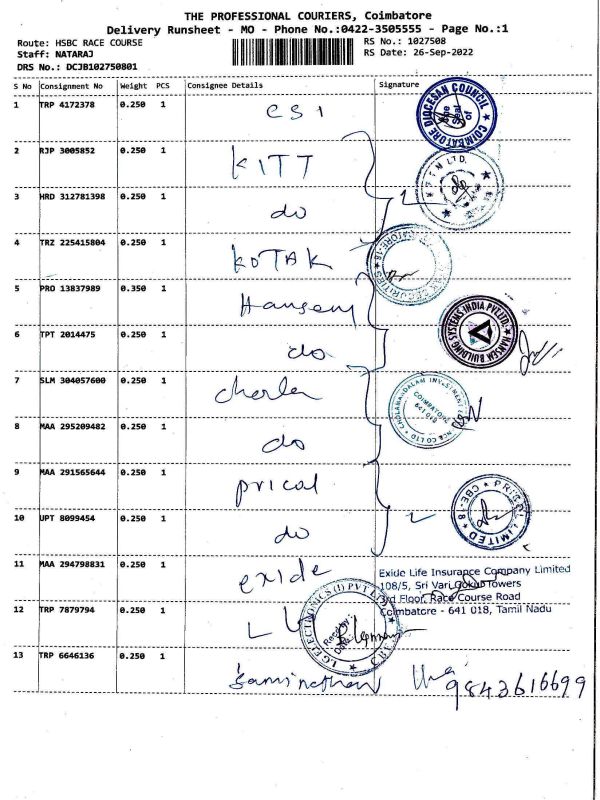 THE PROFESSIONAL COURIERS, Coimbatore
Delivery Runsheet - MO - Phone No.:0422-3505555 - Page No.:1
Route: HSBC RACE COURSE RS No.: 1027508
Staff: NATARAJ RS Date: 26-Sep-2022
DRS No.: DCJB102750801
S No Consignment No Weight PCS Consignee Details Signature
1 TRP 4172378 0.250 1 CSI
COIMBATORE DIOCESAN COUNCIL
The Seal of
2 RJP 3005852 0.250 1 KITT
LTD.
3 HRD 312781398 0.250 1 do
4 TRZ 225415804 0.250 1 KOTAK
SECURITIES
5 PRO 13837989 0.350 1 Hansen
HANSEN BUILDING SYSTEMS INDIA PVT.LTD.
6 TPT 2014475 0.250 1 do
7 SLM 304057600 0.250 1 chola
CHOLAMANDALAM INVESTMENT
CO LTD
COIMBATORE
641 018
8 MAA 295209482 0.250 1 do
9 MAA 291565644 0.250 1 prical
PRICOL LIMITED
CBE-18
10 UPT 8099454 0.250 1 do
11 MAA 294798831 0.250 1 exide
Exide Life Insurance Company Limited
108/5, Sri Vari Gokul Towers
3rd Floor, Race Course Road
Coimbatore - 641 018, Tamil Nadu
12 TRP 7879794 0.250 1
LG ELECTRONICS (I) PVT LTD
CBE
Recd by:
Date:
13 TRP 6646136 0.250 1 Saminathan
9843616699